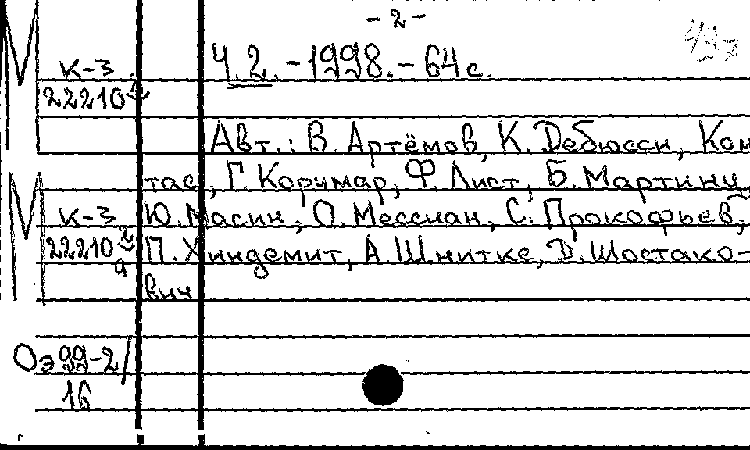 - 2 -
К-3
Ч.2. - 1998. - 64 с.
22210
Авт.: В. Артёмов, К. Дебюсси, Ком
тас, Г. Корчмар, Ф. Лист, Б. Мартину,
К-3
Ю. Масин, О. Мессиан, С. Прокофьев,
22210
П. Хиндемит, А. Шнитке, Д. Шостако-
вич
Оэ 99-2/
16